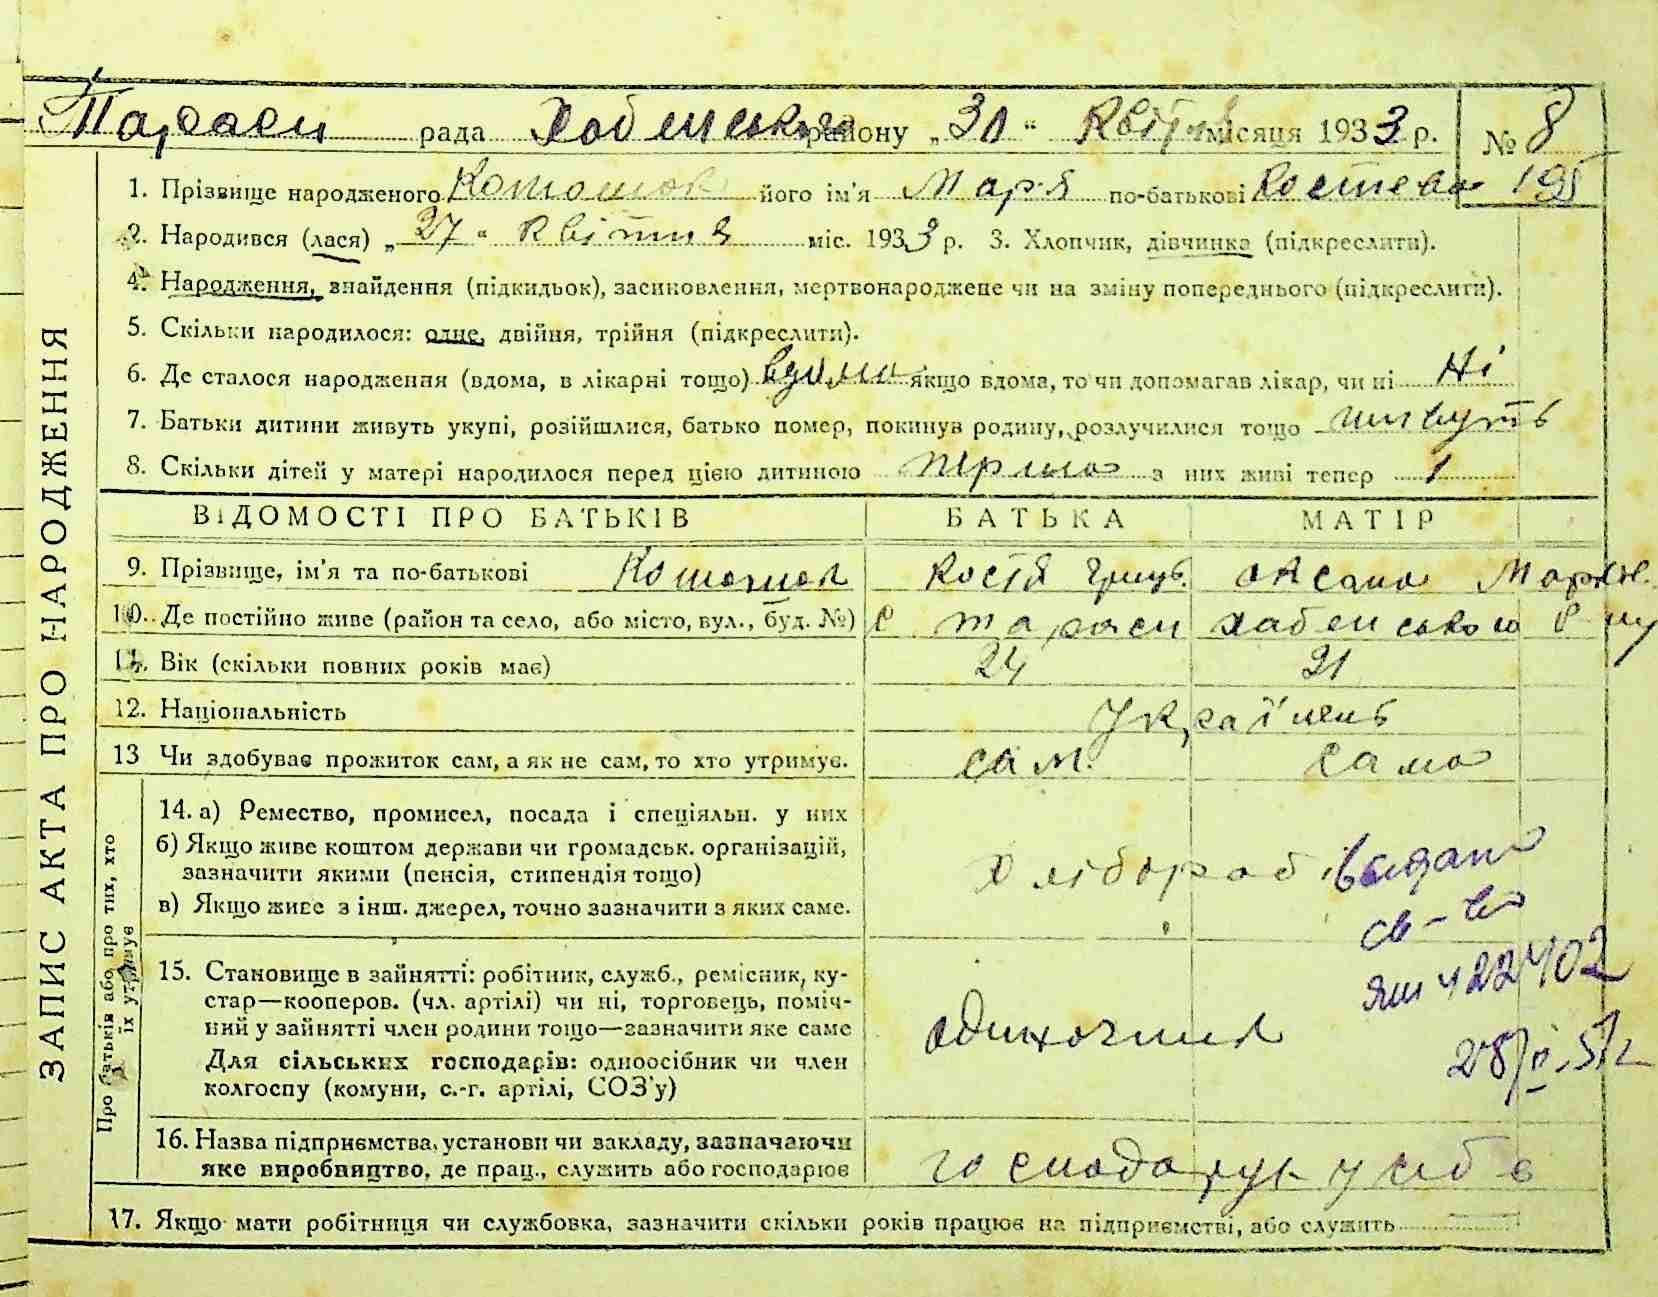 ЗАПИС АКТА ПРО НАРОДЖЕННЯ
Тараси рада Хабенського району „30“ Квітня місяця 1933 р. № 8
1. Прізвище народженого його ім'я Марія по-батькові Костева 195
2. Народився (лася) „27“ Квітня міс. 1933 р. 3. Хлопчик, дівчинка (підкреслити).
4. Народження, знайдення (підкидьок), засиновлення, мертвонароджене чи на зміну попереднього (підкреслити).
5. Скільки народилося: одне, двійня, трійня (підкреслити).
6. Де сталося народження (вдома, в лікарні тощо) вдома якщо вдома, то чи допомагав лікар, чи ні Ні
7. Батьки дитини живуть укупі, розійшлися, батько помер, покинув родину, розлучилися тощо живуть
8. Скільки дітей у матері народилося перед цією дитиною перша з них живі тепер 1
ВІДОМОСТІ ПРО БАТЬКІВ БАТЬКА МАТІР
9. Прізвище, ім'я та по-батькові Костя Гриць. Оксана
10. Де постійно живе (район та село, або місто, вул., буд. №) с Тараси Хабенського р ну
11. Вік (скільки повних років має) 24 21
12. Національність Українець
13 Чи здобуває прожиток сам, а як не сам, то хто утримує. сам. сама
Про батьків або про тих, хто їх утримує
14. а) Ремество, промисел, посада і спеціяльн. у них
б) Якщо живе коштом держави чи громадськ. організацій,
зазначити якими (пенсія, стипендія тощо) хлібороб
в) Якщо живе з інш. джерел, точно зазначити з яких саме.
видано
св-во
ЯШ 422402
28/II.57 г
15. Становище в зайнятті: робітник, служб., ремісник, ку-
стар—кооперов. (чл. артілі) чи ні, торговець, поміч-
ний у зайнятті член родини тощо—зазначити яке саме
Для сільських господарів: одноосібник чи член
колгоспу (комуни, с.-г. артілі, СОЗ'у)
16. Назва підприємства, установи чи закладу, зазначаючи
яке виробництво, де прац., служить або господарює
17. Якщо мати робітниця чи службовка, зазначити скільки років працює на підприємстві, або служить